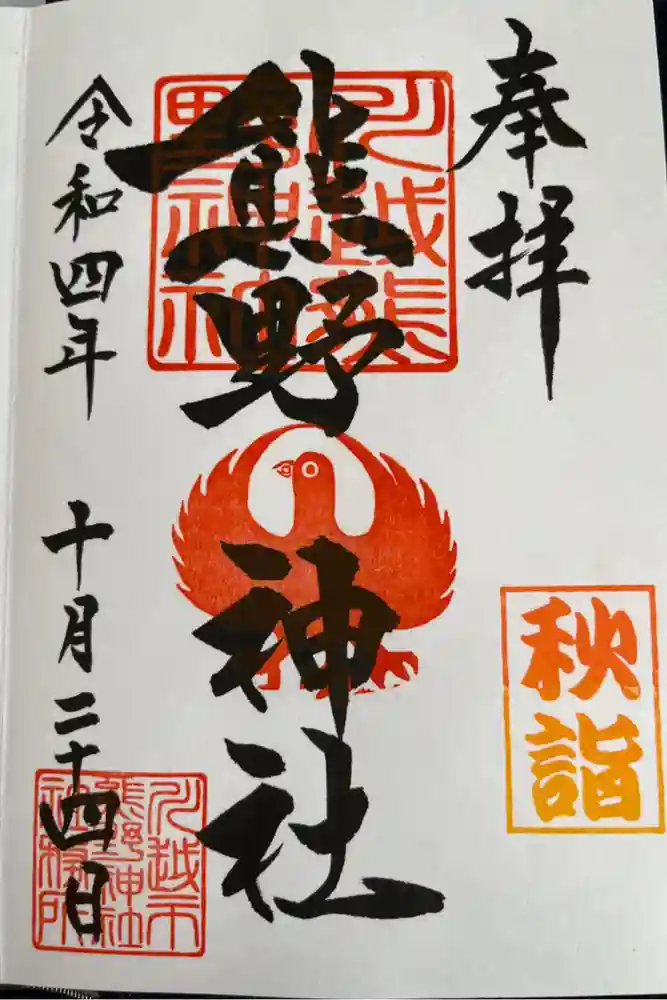 奉拝
秋詣
川越熊野神社
熊野神社
令和四年 十月二十四日
川越市熊野神社社務所